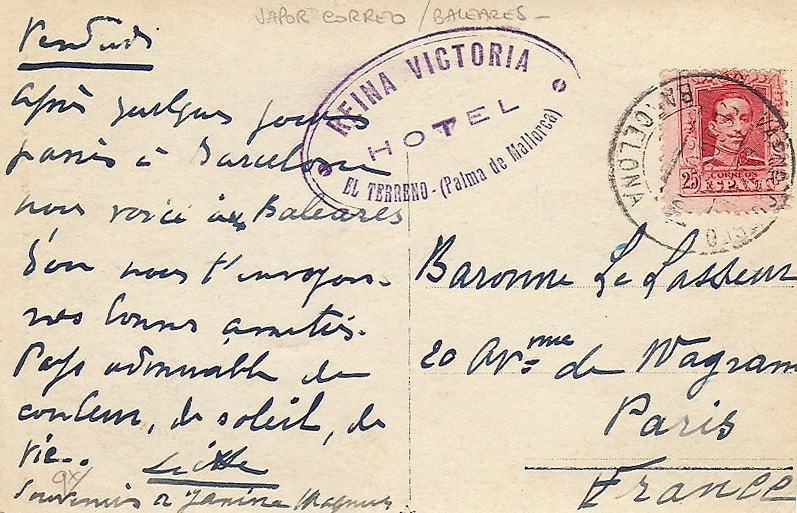 VAPOR CORREO / BALEARES -
Vendredi
Après quelques jours
passés à Barcelone
nous voici aux Baleares
d'où nous t'envoyons
nos bonnes amitiés.
Pays admirable de
couleur, de soleil, de
vie..
Souvenirs à Janine Magnus
REINA VICTORIA
HOTEL
EL TERRENO - (Palma de Mallorca)
BARCELONA
VAPOR CORREO
25 CORREOS
ESPAÑA
Baronne Le Lasseur
20 Avenue de Wagram
Paris
France